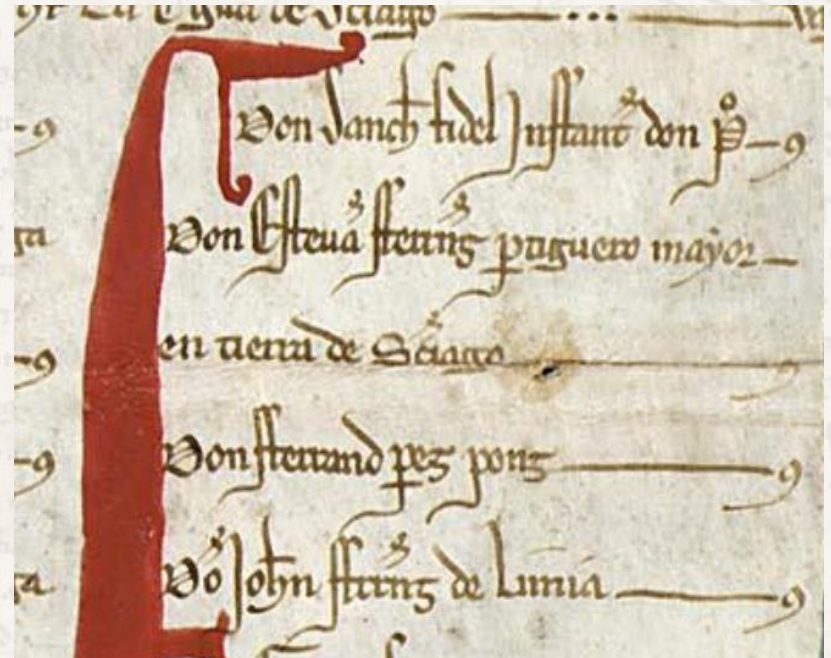 la Egl̃ia de Sc̃iago
Don Sanch̃ fi del Inffant̃ don P̊
Don Esteuã fferrnz̃ ꝑtiguero mayor
en tierra de Sc̃iago
Don fferrand ꝑez ponz
Dõ Joh̃n fferrnz̃ de Limia